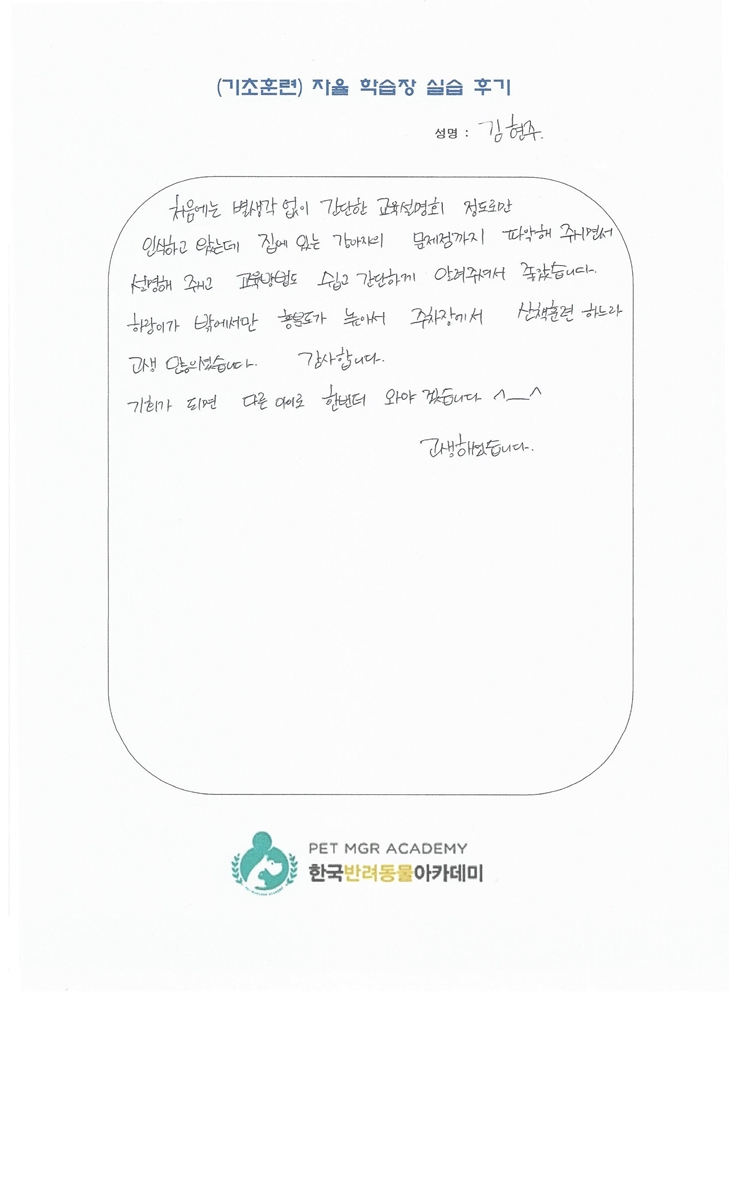 (기초훈련) 자율 학습장 실습 후기
성명 : 김현주.
처음에는 별생각 없이 간단한 교육설명회 정도로만
인식하고 왔는데 집에 있는 강아지의 문제점까지 파악해 주시면서
설명해 주시고 교육방법도 쉽고 간단하게 알려주셔서 좋았습니다.
하랑이가 밖에서만 흥분도가 높아서 주차장에서 산책훈련 하느라
고생 많으셨습니다. 감사합니다.
기회가 되면 다른 아이로 한번더 와야 겠습니다 ^__^
고생하셨습니다.
PET MGR ACADEMY
한국반려동물아카데미